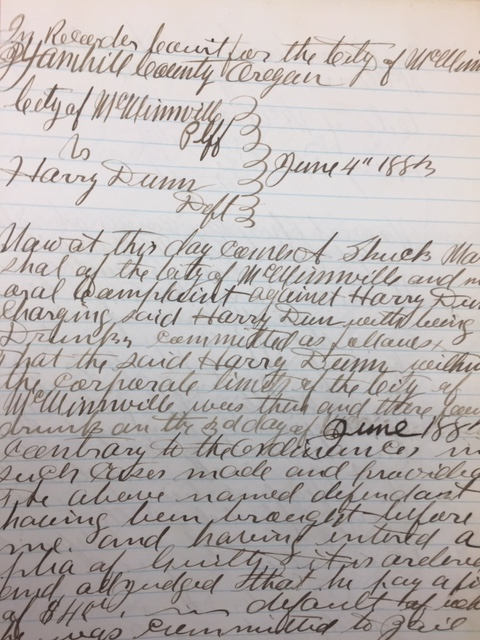 In Recorder Court for the City of McMinn
Yamhill County Oregon
City of McMinnville
Plff
vs
June 4th 188
Harry Dunn
Deft
Now at this day comes A Shuck Mar
shal of the City of McMinnville and m
oral complaint against Harry Dun
Charging said Harry Dun with being
Drunk, committed as follows,
That the said Harry Dunn within
the corporate limits of the City of
McMinnville was then and there foun
drunk on the 3d day of June 188
contrary to the Ordinances in
such cases made and provided
The above named defendant
having been brought before
me and having entered a
plea of Guilty it is ordered
and adjudged that he pay a fi
of $4 in default of
he was committed to Jail